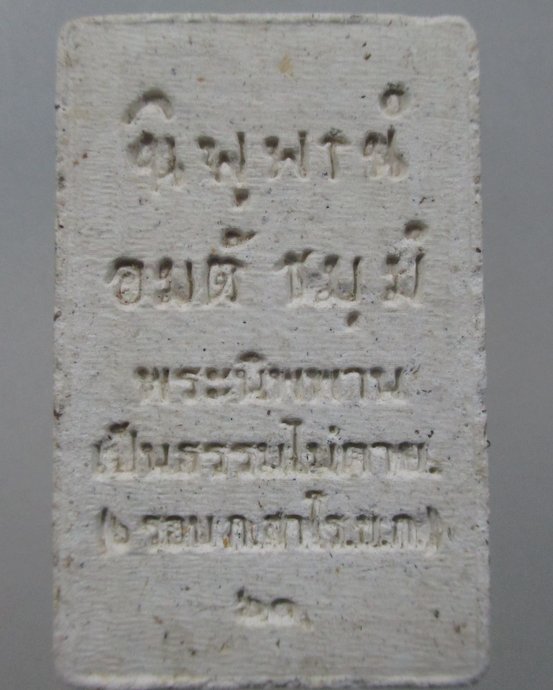 นิพฺพานํ
อมตํ ธมฺมํ
พระนิพพาน
เป็นธรรมไม่ตาย.
(๖ รอบ.ภ.สาโร.ข.ก.)